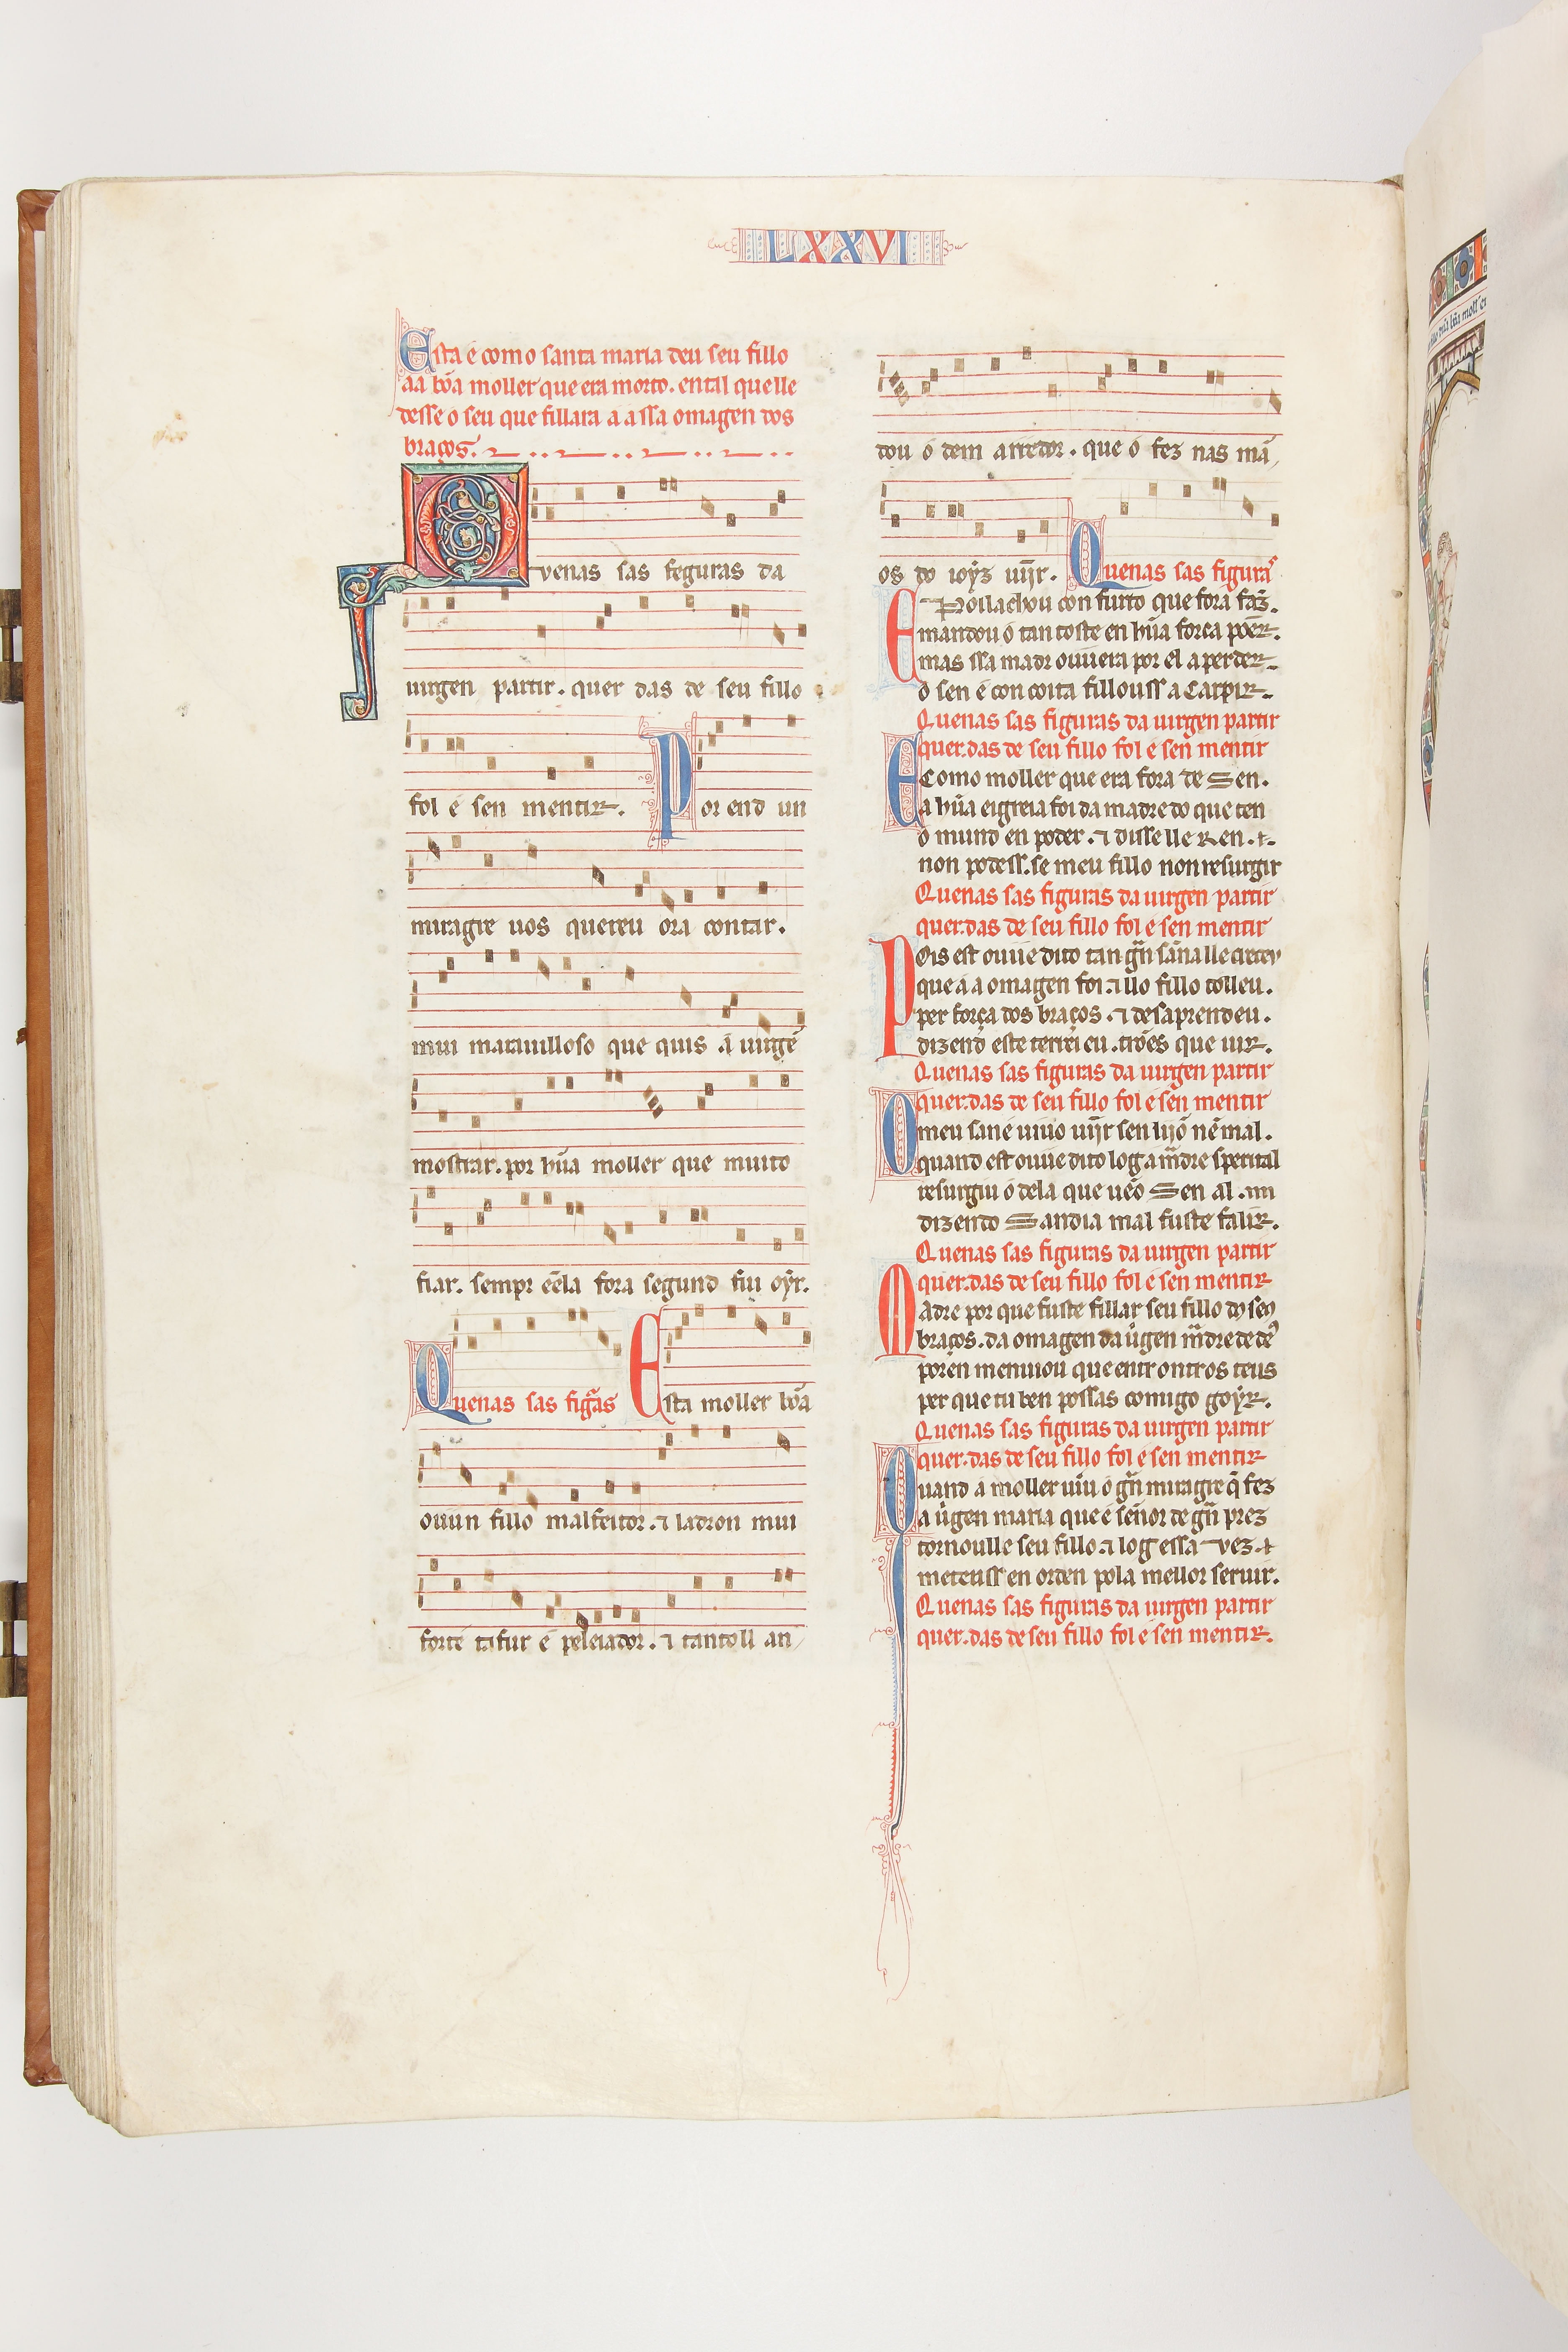 LXXVI
Esta é como santa maria deu seu fillo
aa bõa moller que era morto. en tal que lle
desse o seu que fillara á a ssa omagen dos
braços.
Quenas sas feguras da
uirgen partir. quer das de seu fillo
fol é sen mentir. Por end un
miragre uos quereu óra contar.
mui marauilloso que quis á uirgẽ
mostrar. por hũa moller que muito
fiar. sempr eẽla fora segund fui oyr.
Quenas sas figᷓas Esta moller bõa
ouun fillo malfeitor. ⁊ ladron mui
fórte tafur é peleiador. ⁊ tantoll an
dou ó dem arredor. que ó fez nas mã
os do ioyz uĩjr. Quenas sas figuras
E Pois lachou con furto que fora faz̃.
mandou ó tan toste en hũa forca põer.
mas ssa madr ouuera por el a perder
ó sen é con coita fillouss a Carpir.
Quenas sas figuras da uirgen partir
quer das de seu fillo fol é sen mentir
E Como moller que era fora de Sen.
a hũa eigreia foi da madre do que ten
ó mund en poder. ⁊ disse lle Ren.
non podess. se meu fillo non resurgir
Quenas sas figuras da uirgen partir
quer das de seu fillo fol é sen mentir
Pois est ouue dito tan gñ sãna lle
que á a omagen foi. ⁊ llo fillo tolleu.
per força dos braços. ⁊ desaprendeu.
dizend este terrei eu. trões que uir.
Quenas sas figuras da uirgen partir
quer das de seu fillo fol é sen mentir
O meu sané uiuo uĩjr sen lijõ nẽ mal.
quand est ouue dito log a m̃dre sperital
resurgiu ó dela que uẽo Sen al.
dizendo Sandia mal fuste falir.
Quenas sas figuras da uirgen partir
quer das de seu fillo fol é sen mentir
Madre por que fuste fillar seu fillo dos seus
braços. da omagen da uirgen m̃dre de
porén menuiou que entr ontros teus
per que tu ben possas comigo goyr.
Quenas sas figuras da uirgen partir
quer das de seu fillo fol é sen mentir
Quand á moller uiu ó gñ miragre q̃ fez
a uirgen maria que é señor de gñ prez
tornoulle seu fillo. ⁊ log essa vez.
meteuss en orden pola mellor seruir.
Quenas sas figuras da uirgen partir
quer das de seu fillo fol é sen mentir.